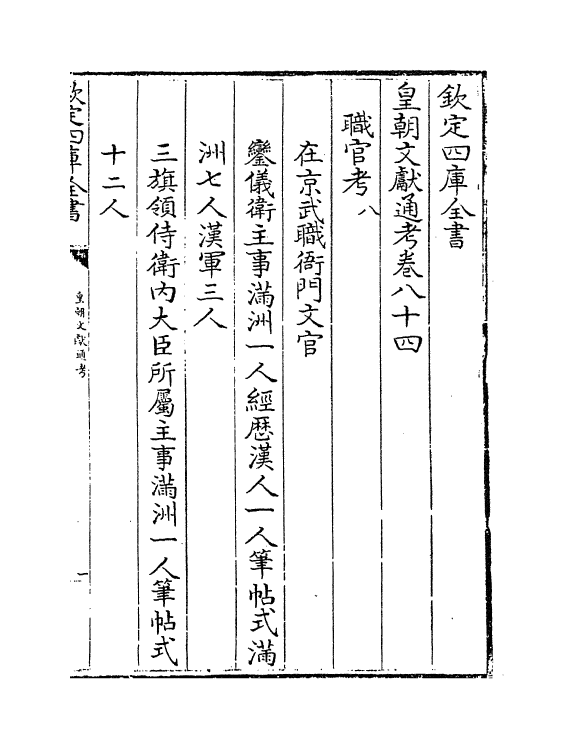 欽定四庫全書
皇朝文獻通考卷八十四
職官考八
在京武職衙門文官
鑾儀衛主事滿洲一人經歷漢人一人筆帖式滿
洲七人漢軍三人
三旗領侍衛内大臣所屬主事滿洲一人筆帖式
十二人
欽定四庫全書
皇朝文獻通考
一